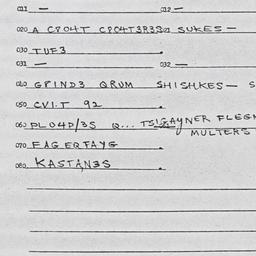 011 — 012 —
020 A CPO4T CPO4T3R3S 021 SUKES —
030 TUF3
031 — 032 —
040 GPIND3 QRUM SHISHKES — S
050 CVI:T 92
060 PLO4D/3S Q... TSIGAYNER FLEGN
MULTERS
070 FAG EQ FAYG
080 KASTAN3S